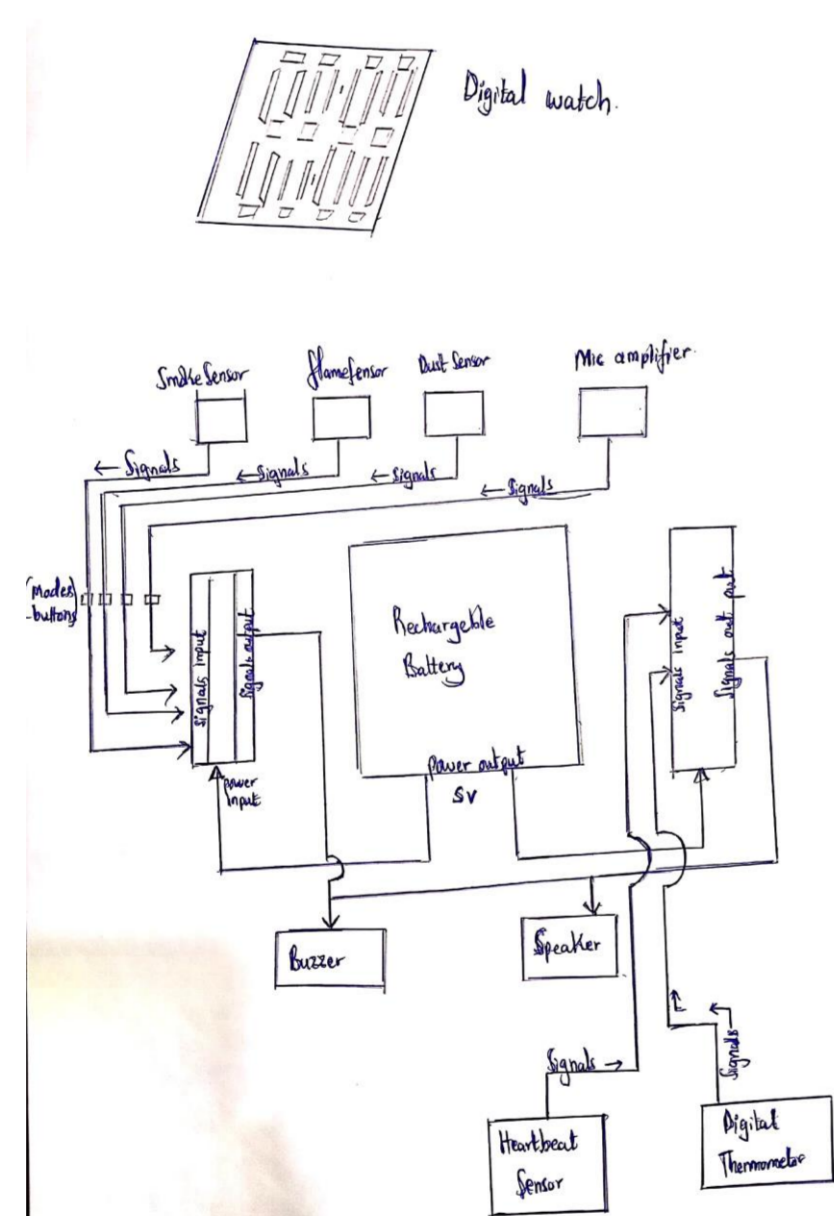 Digital watch.
Smoke Sensor
flame sensor
Dust Sensor
Mic amplifier.
← Signals
← signals
← signals
← Signals
(Modes)
-buttons
signals input
signals output
Rechargeble
Battery
power output
5V
signals input
signals out put
power
Input
Buzzer
Speaker
Signals →
Signals
Heartbeat
Sensor
Digital
Thermometer